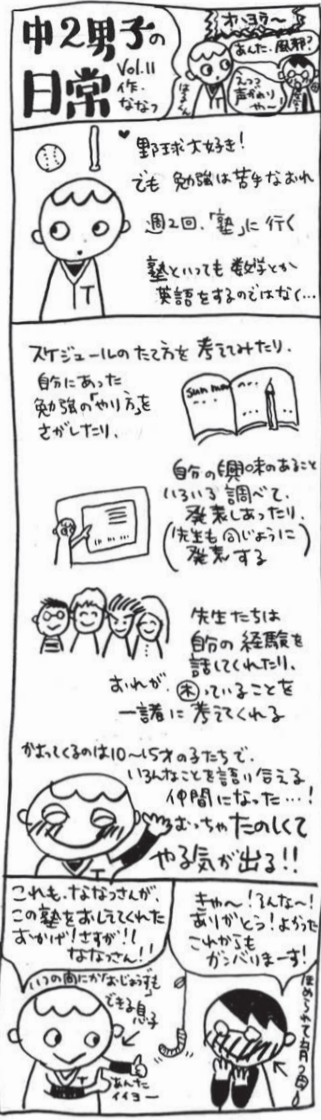 中2男子の
日常
Vol.11
作.
ななっ
オハヨウ〜
あんた、風邪?
えっっ
声がわり
や〜!
野球大好き!
でも 勉強は苦手なおれ
週2回、「塾」に行く
塾といっても 数学とか
英語をするのではなく…
スケジュールのたて方を 考えてみたり、
自分にあった
勉強の「やり方」を
さがしたり、
自分の興味のあること
いろいろ調べて、
発表しあったり、
(先生も同じように
発表する)
先生たちは
自分の経験を
話してくれたり、
おれが、困っていることを
一諸に考えてくれる
かよってくるのは10〜15才の子たちで、
いろんなことを語り合える
仲間になった…!
むっちゃたのしくて
やる気が出る!!
これも、ななっさんが、
この塾をおしえてくれた
おかげ!さすが!!
ななっさん!!
いつの間にか「おじょうず」も
できる息子
あんた
イイヨー
きゃ〜!そんな〜!
ありがとう!よかった
これからも
ガンバりまーす!